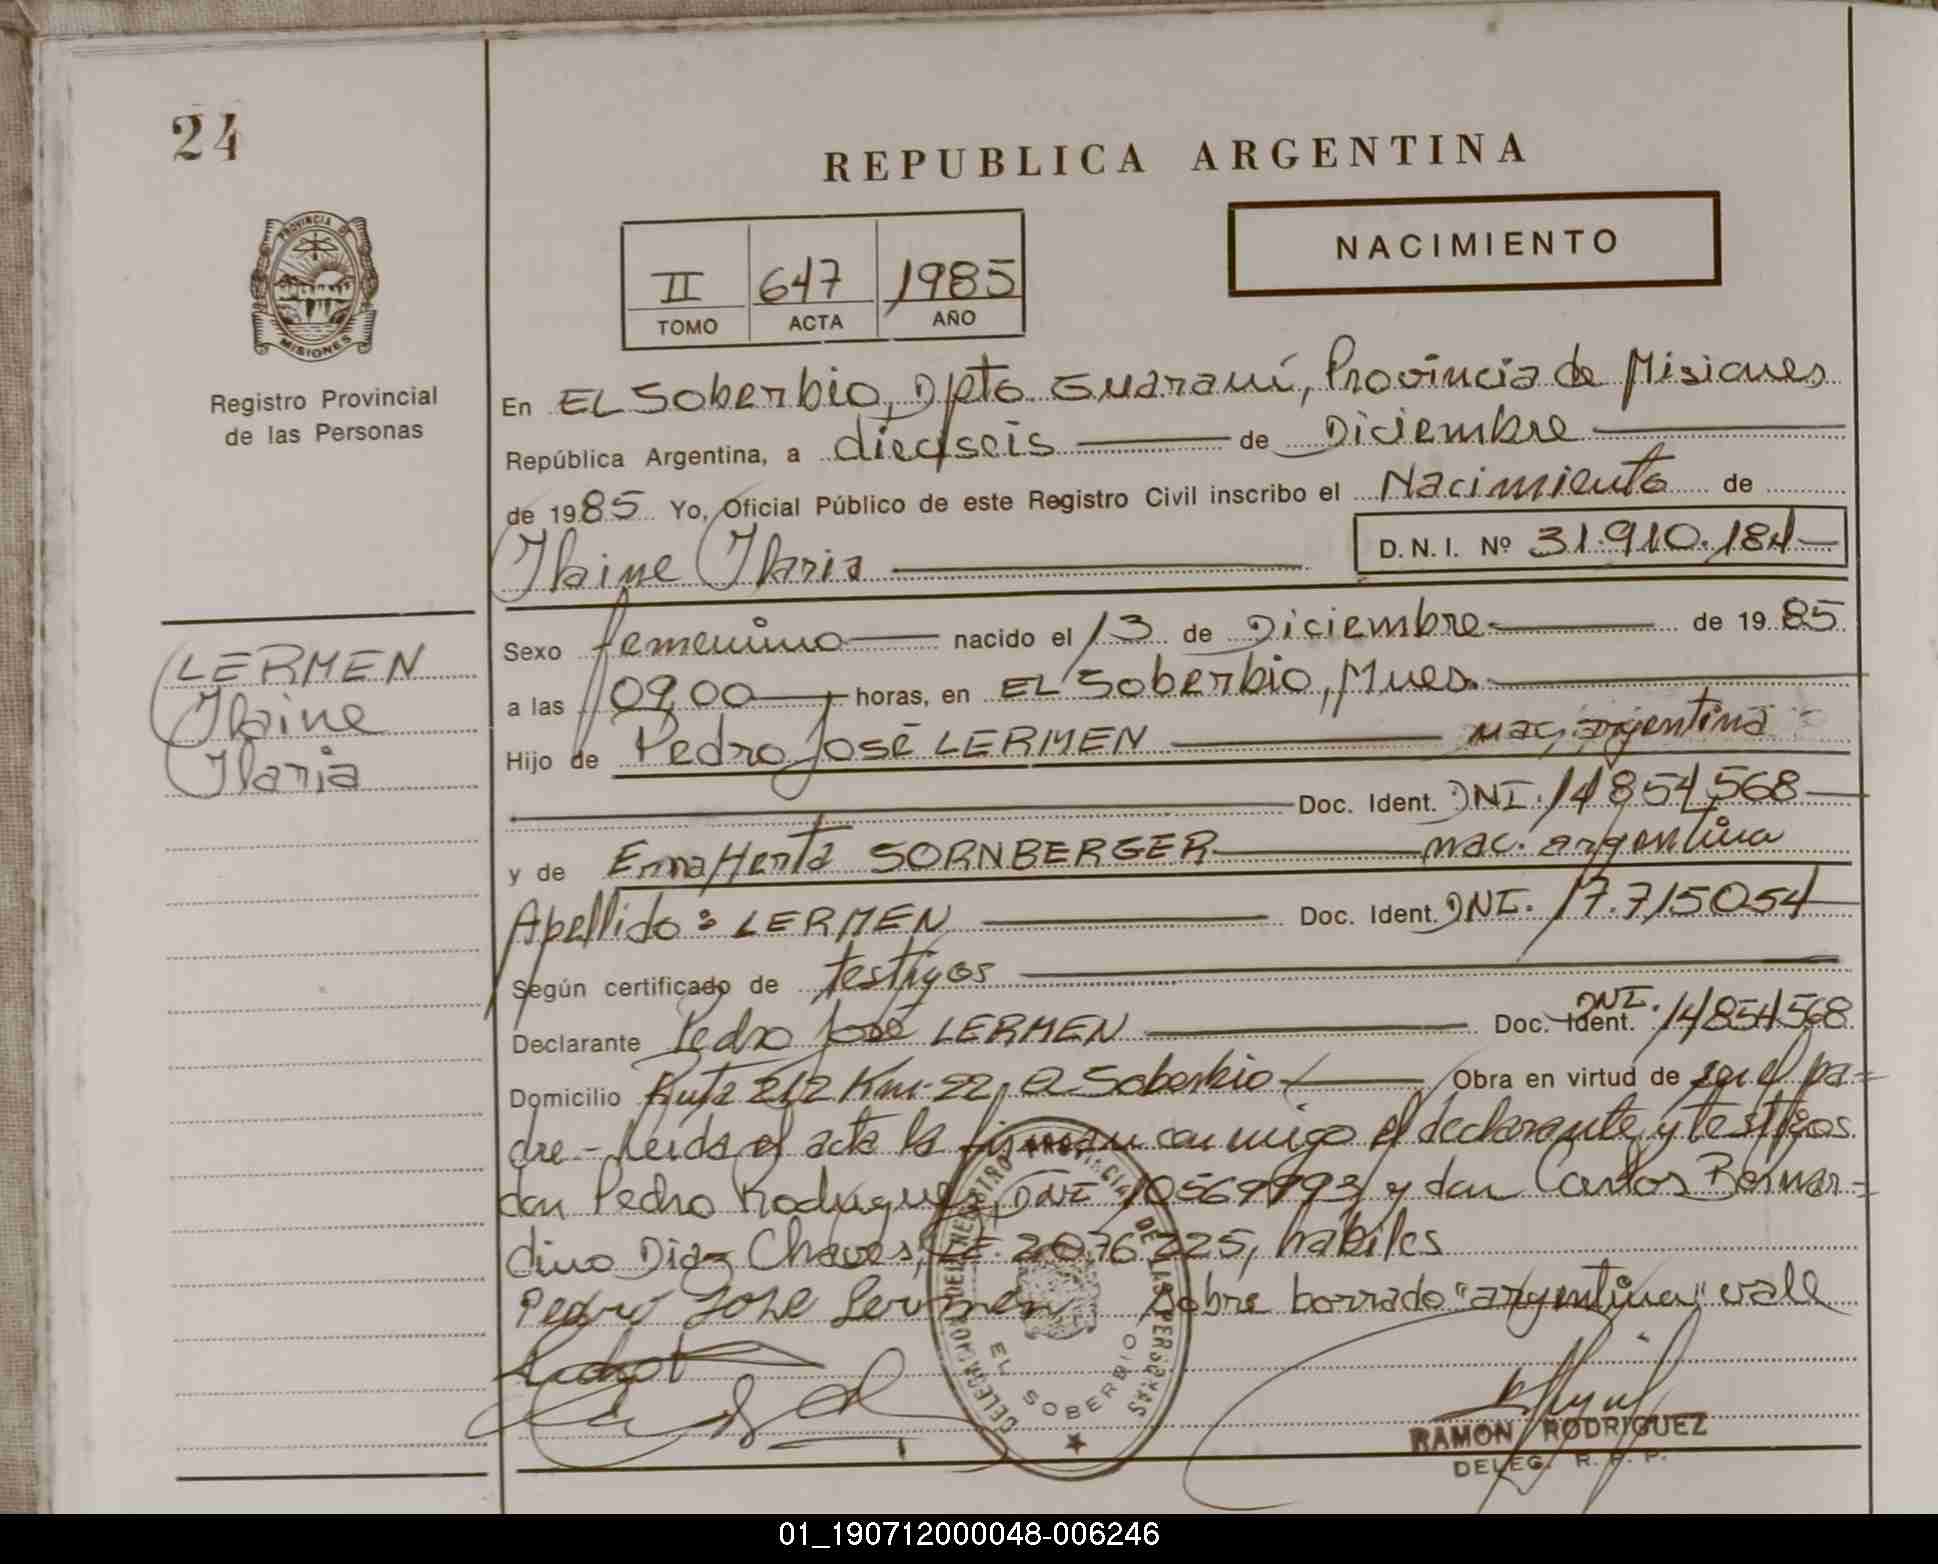 24
REPUBLICA ARGENTINA
NACIMIENTO
II 647 1985
TOMO ACTA AÑO
PROVINCIA D
MISIONES
Registro Provincial
de las Personas
En EL Soberbio, Dpto. Guaraní, Provincia de Misiones
República Argentina, a dieciseis de Diciembre
de 1985 Yo, Oficial Público de este Registro Civil inscribo el Nacimiento de
Ilaine Ilaria D.N.I. Nº 31.910.184
LERMEN
Ilaine
Ilaria
Sexo femenino nacido el 13 de Diciembre de 1985
a las 09,00 horas, en EL Soberbio, Mnes.
Hijo de Pedro José LERMEN nac. argentina
Doc. Ident. DNI. 14854568
y de Erna Herta SORNBERGER nac. argentina
Apellido: LERMEN Doc. Ident. DNI. 17.715054
Según certificado de testigos
Declarante Pedro José LERMEN Doc. Ident. DNI. 14854568
Domicilio Ruta 212 Km-22, El Soberbio Obra en virtud de ser el pa=
dre - Leida el acta la firman con migo el declarante y testigos
don Pedro Rodriguez DNI 10569993 y don Carlos Bernar=
dino Diaz Chaves, LE. 2076225, habiles
Pedro Jose Lermen Sobre borrado "argentina" vale
DELEGACION DEL REGISTRO PROVINCIAL DE LAS PERSONAS
EL SOBERBIO
RAMON RODRIGUEZ
DELEG. R. P. P.
01_190712000048-006246